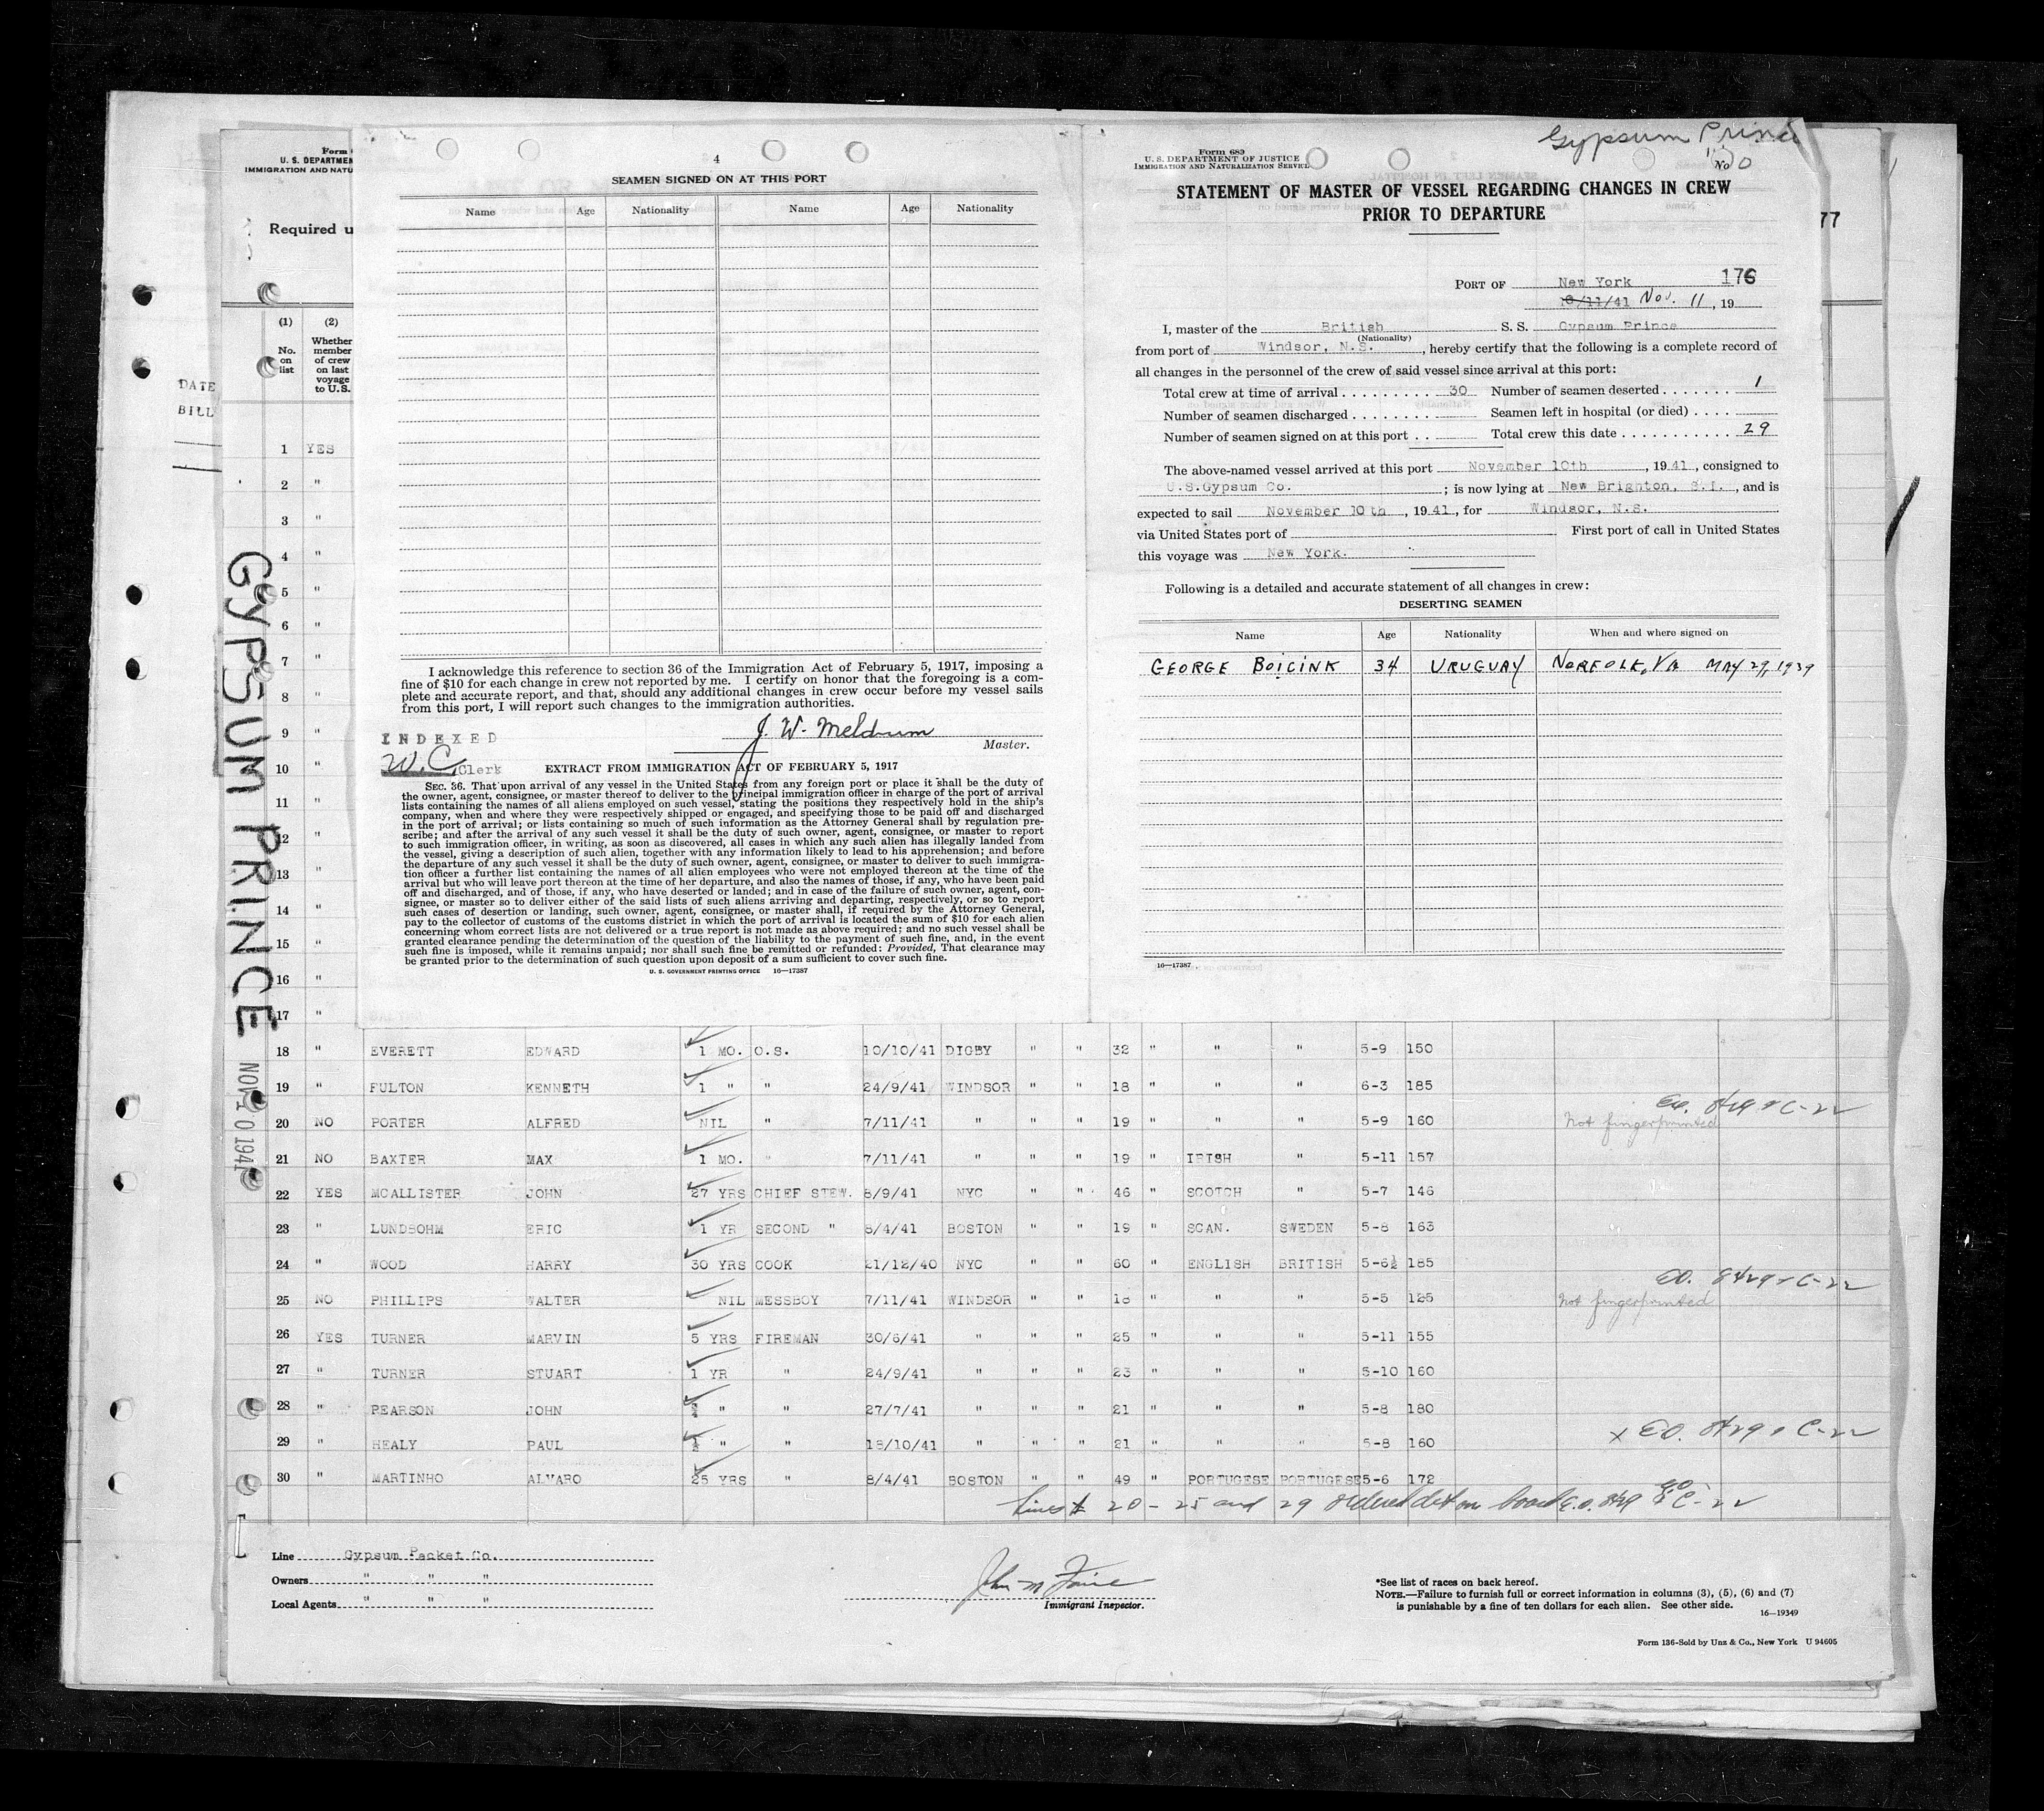 Gypsum Prince
Form 683
U. S. DEPARTMENT OF JUSTICE
IMMIGRATION AND NATURALIZATION SERVICE
No
STATEMENT OF MASTER OF VESSEL REGARDING CHANGES IN CREW
PRIOR TO DEPARTURE
176
PORT OF New York
10/11/41 Nov. 11, 19
I, master of the British S. S. Gypsum Prince
(Nationality)
from port of Windsor, N.S., hereby certify that the following is a complete record of
all changes in the personnel of the crew of said vessel since arrival at this port:
Total crew at time of arrival . . . . . . . . . . 30 Number of seamen deserted . . . . . . . 1
Number of seamen discharged . . . . . . . . Seamen left in hospital (or died) . . . .
Number of seamen signed on at this port . . Total crew this date . . . . . . . . . . . . 29
The above-named vessel arrived at this port November 10th, 1941, consigned to
U.S.Gypsum Co. ; is now lying at New Brighton, S.I., and is
expected to sail November 10th, 1941, for Windsor, N.S.
via United States port of First port of call in United States
this voyage was New York.
Following is a detailed and accurate statement of all changes in crew:
DESERTING SEAMEN
Name Age Nationality When and where signed on
GEORGE BOICINK 34 URUGUAY NORFOLK, VA MAY 29, 1939
16—17387
4
SEAMEN SIGNED ON AT THIS PORT
Name Age Nationality Name Age Nationality
I acknowledge this reference to section 36 of the Immigration Act of February 5, 1917, imposing a
fine of $10 for each change in crew not reported by me. I certify on honor that the foregoing is a com-
plete and accurate report, and that, should any additional changes in crew occur before my vessel sails
from this port, I will report such changes to the immigration authorities.
J. W. Meldrum
Master.
INDEXED
W.C. Clerk
EXTRACT FROM IMMIGRATION ACT OF FEBRUARY 5, 1917
SEC. 36. That upon arrival of any vessel in the United States from any foreign port or place it shall be the duty of
the owner, agent, consignee, or master thereof to deliver to the principal immigration officer in charge of the port of arrival
lists containing the names of all aliens employed on such vessel, stating the positions they respectively hold in the ship's
company, when and where they were respectively shipped or engaged, and specifying those to be paid off and discharged
in the port of arrival; or lists containing so much of such information as the Attorney General shall by regulation pre-
scribe; and after the arrival of any such vessel it shall be the duty of such owner, agent, consignee, or master to report
to such immigration officer, in writing, as soon as discovered, all cases in which any such alien has illegally landed from
the vessel, giving a description of such alien, together with any information likely to lead to his apprehension; and before
the departure of any such vessel it shall be the duty of such owner, agent, consignee, or master to deliver to such immigra-
tion officer a further list containing the names of all alien employees who were not employed thereon at the time of the
arrival but who will leave port thereon at the time of her departure, and also the names of those, if any, who have been paid
off and discharged, and of those, if any, who have deserted or landed; and in case of the failure of such owner, agent, con-
signee, or master so to deliver either of the said lists of such aliens arriving and departing, respectively, or so to report
such cases of desertion or landing, such owner, agent, consignee, or master shall, if required by the Attorney General,
pay to the collector of customs of the customs district in which the port of arrival is located the sum of $10 for each alien
concerning whom correct lists are not delivered or a true report is not made as above required; and no such vessel shall be
granted clearance pending the determination of the question of the liability to the payment of such fine, and, in the event
such fine is imposed, while it remains unpaid; nor shall such fine be remitted or refunded: Provided, That clearance may
be granted prior to the determination of such question upon deposit of a sum sufficient to cover such fine.
U. S. GOVERNMENT PRINTING OFFICE 16—17387
Form
U. S. DEPARTMEN
IMMIGRATION AND NATU
Required u
77
DATE
BILL
(1) (2)
No. on list
Whether member of crew on last voyage to U.S.
1 YES
2 "
3 "
4 "
5 "
6 "
7 "
8 "
9 "
10 "
11 "
12 "
13 "
14 "
15 "
16 "
17 "
GYPSUM PRINCE
NOV 10 1941
18 " EVERETT EDWARD 1 MO. O.S. 10/10/41 DIGBY " " 32 " " " 5-9 150
19 " FULTON KENNETH 1 " " 24/9/41 WINDSOR " " 18 " " " 6-3 185
20 NO PORTER ALFRED NIL " 7/11/41 " " " 19 " " " 5-9 160 Not fingerprinted
21 NO BAXTER MAX 1 MO. " 7/11/41 " " " 19 " IRISH " 5-11 157
22 YES MCALLISTER JOHN 27 YRS CHIEF STEW. 8/9/41 NYC " " 46 " SCOTCH " 5-7 146
23 " LUNDSOHM ERIC 1 YR SECOND " 8/4/41 BOSTON " " 19 " SCAN. SWEDEN 5-8 163
24 " WOOD HARRY 30 YRS COOK 21/12/40 NYC " " 60 " ENGLISH BRITISH 5-6½ 185
25 NO PHILLIPS WALTER NIL MESSBOY 7/11/41 WINDSOR " " 18 " " " 5-5 125 Not fingerprinted EO. 8429 & C-22
26 YES TURNER MARVIN 5 YRS FIREMAN 30/6/41 " " " 25 " " " 5-11 155
27 " TURNER STUART 1 YR " 24/9/41 " " " 23 " " " 5-10 160
28 " PEARSON JOHN " " 27/7/41 " " " 21 " " " 5-8 180
29 " HEALY PAUL ½ " " 18/10/41 " " " 21 " " " 5-8 160 x EO. 8429 & C-22
30 " MARTINHO ALVARO 25 YRS " 8/4/41 BOSTON " " 49 " PORTUGESE PORTUGESE 5-6 172
Lines 20 - 25 and 29 ordered det on board E.O. 8429 & C-22
Line Gypsum Packet Co.
Owners " " "
Local Agents " " "
Immigrant Inspector.
*See list of races on back hereof.
NOTE.—Failure to furnish full or correct information in columns (3), (5), (6) and (7)
is punishable by a fine of ten dollars for each alien. See other side.
16—19349
Form 136-Sold by Unz & Co., New York U 94605